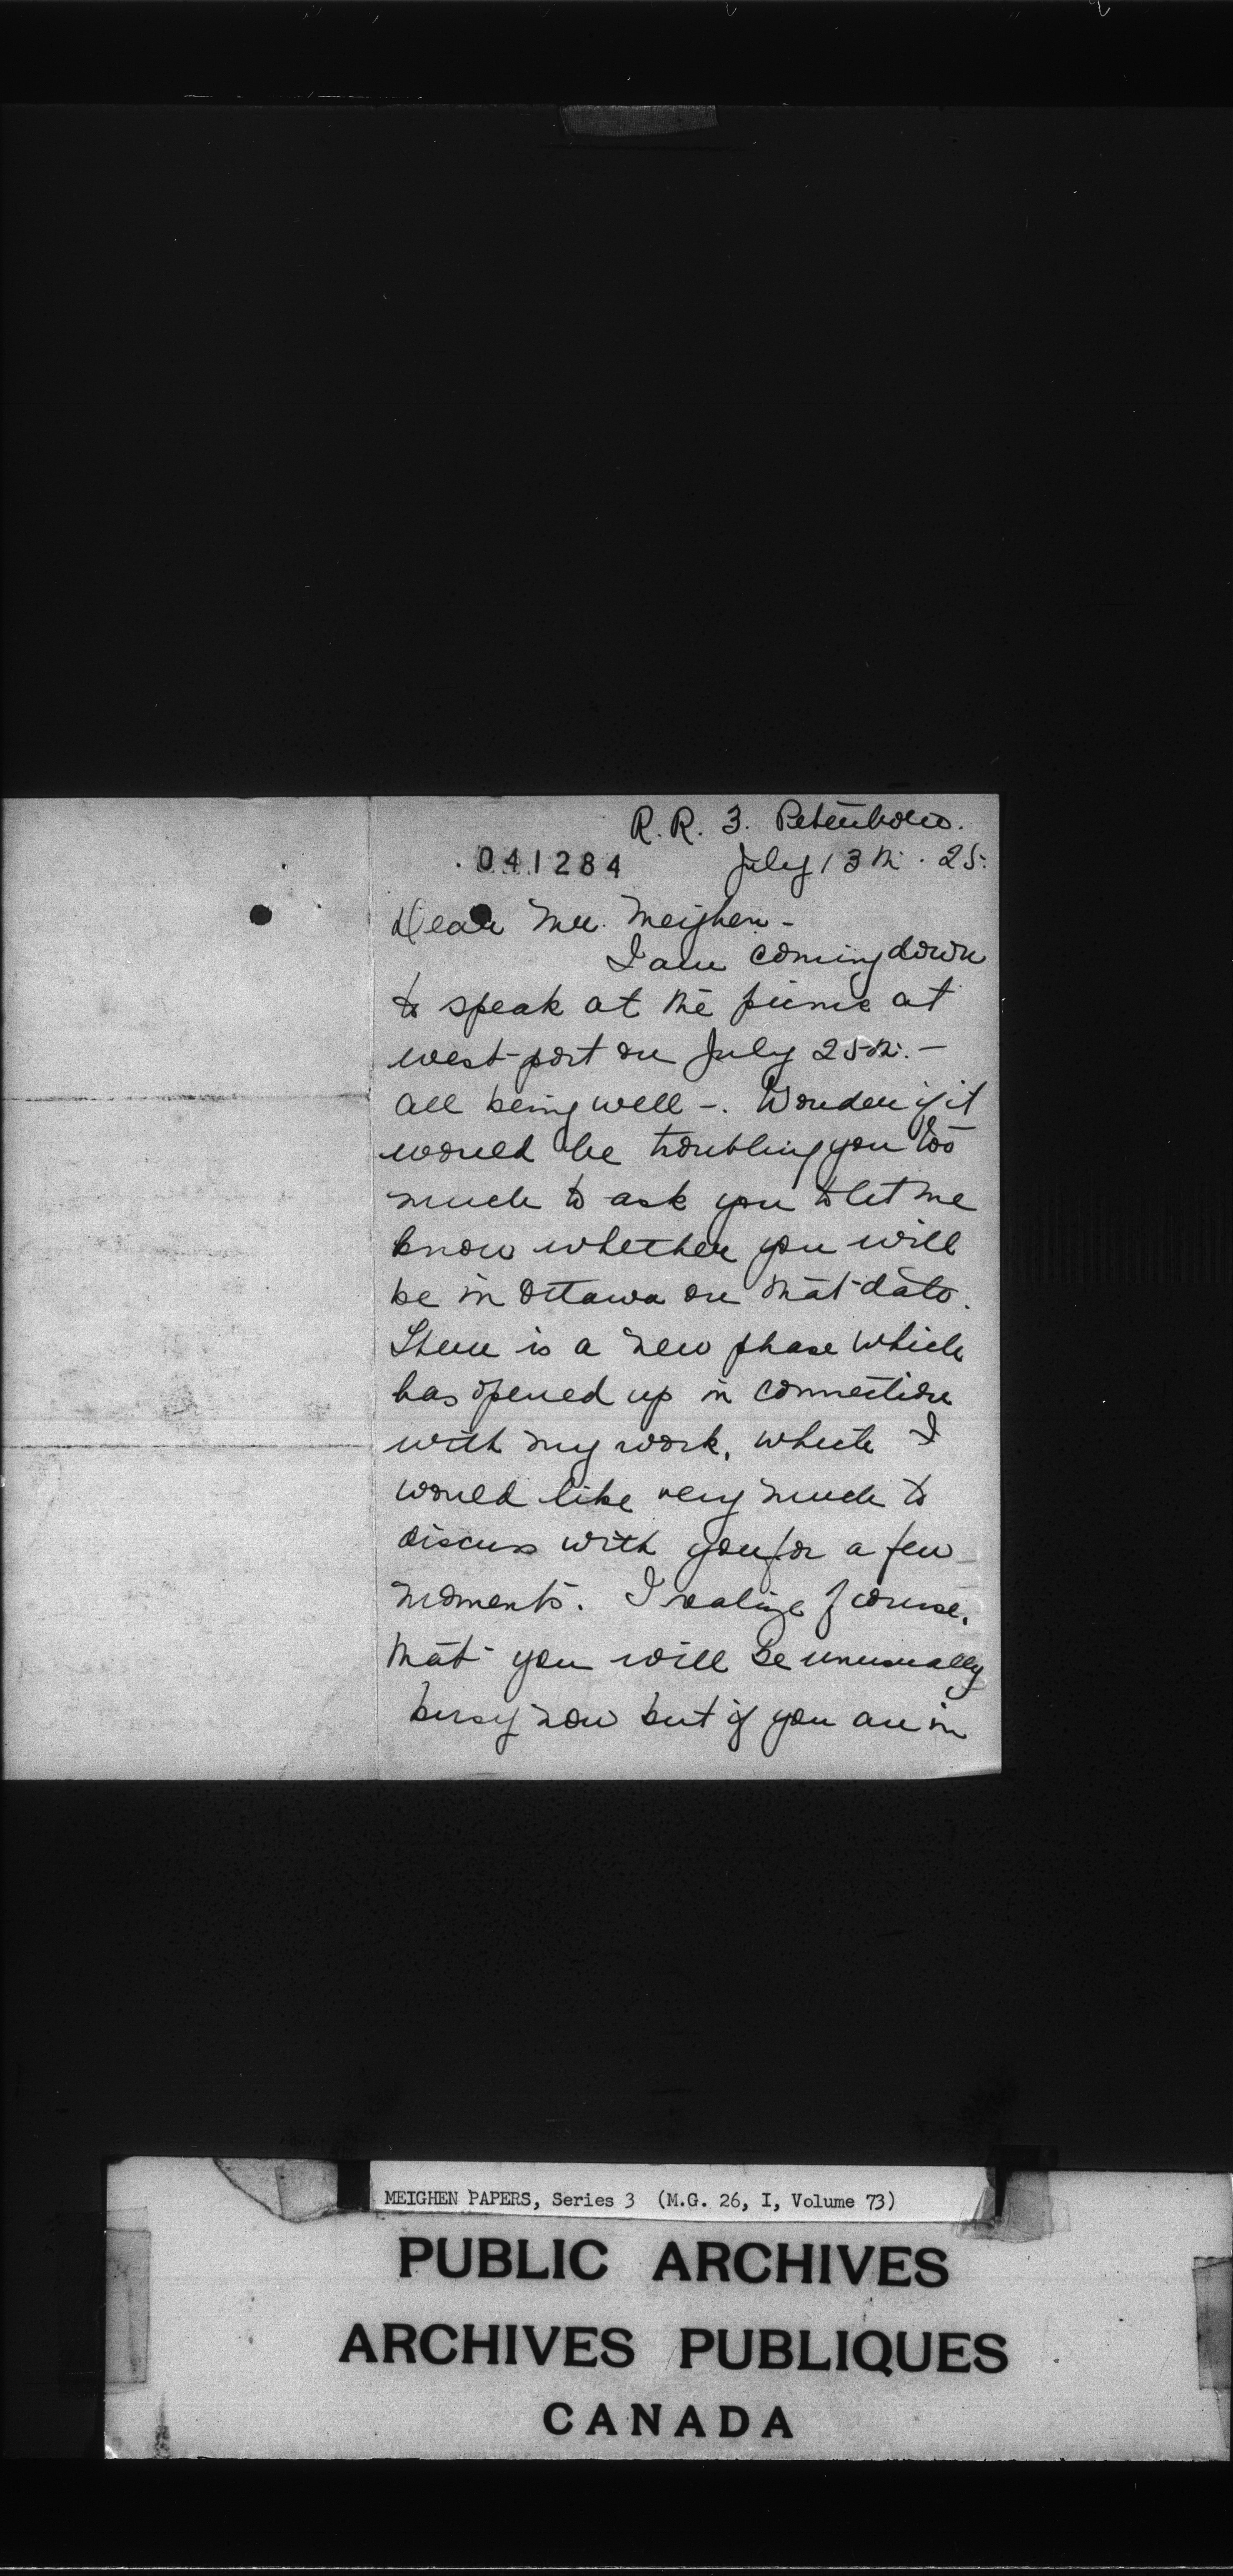 R. R. 3. Peterboro.
041284 July 13th. 25.
Dear Mr. Meighen -
I am coming down
to speak at the picnic at
west-port on July 25th. -
all being well -. Wonder if it
would be troubling you too
much to ask you to let me
know whether you will
be in Ottawa on that date.
There is a new phase which
has opened up in connection
with my work, which I
would like very much to
discuss with you for a few
moments. I realize of course,
that you will be unusually
busy now but if you are in
MEIGHEN PAPERS, Series 3 (M.G. 26, I, Volume 73)
PUBLIC ARCHIVES
ARCHIVES PUBLIQUES
CANADA